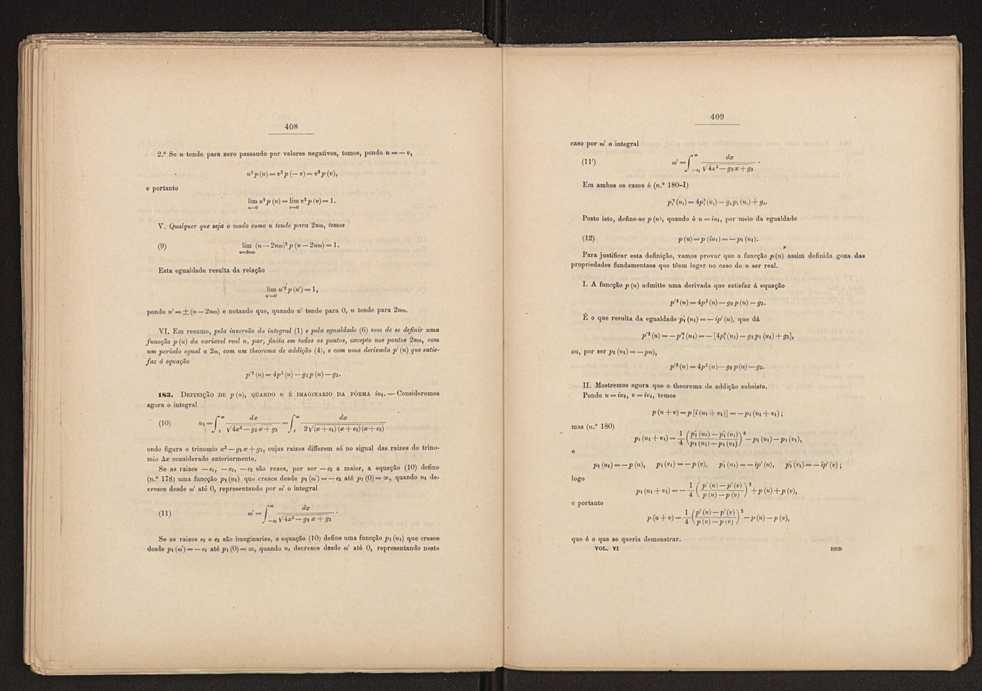 408
2.º Se u tende para zero passando por valores negativos, temos, pondo u = — v,
u² p (u) = v² p (— v) = v² p (v),
e portanto
lim u² p (u) = lim v² p (v) = 1.
u=0 v=0
V. Qualquer que seja o modo como u tende para 2nω, temos
(9) lim (u — 2nω)² p (u — 2nω) = 1.
u=2nω
Esta egualdade resulta da relação
lim u'² p (u') = 1,
u'=0
pondo u' = ± (u — 2nω) e notando que, quando u' tende para 0, u tende para 2nω.
VI. Em resumo, pela inversão do integral (1) e pela egualdade (6) vem de se definir uma
funcção p (u) da variavel real u, par, finita em todos os pontos, excepto nos pontos 2nω, com
um periodo egual a 2ω, com um theorema de addição (4), e com uma derivada p' (u) que satis-
faz á equação
p'² (u) = 4p³ (u) — g₂ p (u) — g₃.
183. Definição de p (u), quando u é imaginario da fórma iu₁. — Consideremos
agora o integral
(10) u₁ = ∫ₓ^∞ dx / √4x³ — g₂ x + g₃ = ∫ₓ^∞ dx / 2√(x + e₁) (x + e₂) (x + e₃)
onde figura o trinomio x³ — g₂ x + g₃, cujas raizes differem só no signal das raizes do trino-
mio Δx considerado anteriormente.
Se as raizes — e₁, — e₂, — e₃ são reaes, por ser — e₃ a maior, a equação (10) define
(n.º 178) uma funcção p₁ (u₁) que cresce desde p₁ (ω') = — e₃ até p₁ (0) = ∞, quando u₁ de-
cresce desde ω' até 0, representando por ω' o integral
(11) ω' = ∫₋ₑ₃^∞ dx / √4x³ — g₂ x + g₃ .
Se as raizes e₂ e e₃ são imaginarias, a equação (10) define uma funcção p₁ (u₁) que cresce
desde p₁ (ω') = — e₁ até p₁ (0) = ∞, quando u₁ decresce desde ω' até 0, representando neste
409
caso por ω' o integral
(11') ω' = ∫₋ₑ₁^∞ dx / √4x³ — g₂ x + g₃ .
Em ambos os casos é (n.º 180-I)
p'₁² (u₁) = 4p₁³ (u₁) — g₂ p₁ (u₁) + g₃.
Posto isto, define-se p (u), quando é u = iu₁, por meio da egualdade
(12) p (u) = p (iu₁) = — p₁ (u₁).
Para justificar esta definição, vamos provar que a funcção p (u) assim definida goza das
propriedades fundamentaes que têem logar no caso de u ser real.
I. A funcção p (u) admitte uma derivada que satisfaz á equação
p'² (u) = 4p³ (u) — g₂ p (u) — g₃.
É o que resulta da egualdade p'₁ (u₁) = — ip' (u), que dá
p'² (u) = — p'₁² (u₁) = — [4p₁³ (u₁) — g₂ p₁ (u₁) + g₃],
ou, por ser p₁ (u₁) = — pu),
p'² (u) = 4p³ (u) — g₂ p (u) — g₃.
II. Mostremos agora que o theorema de addição subsiste.
Pondo u = iu₁, v = iv₁, temos
p (u + v) = p [i (u₁ + v₁)] = — p₁ (u₁ + v₁) ;
mas (n.º 180)
p₁ (u₁ + v₁) = 1/4 (p'₁ (u₁) — p'₁ (v₁) / p₁ (u₁) — p₁ (v₁))² — p₁ (u₁) — p₁ (v₁),
e
p₁ (u₁) = — p (u), p₁ (v₁) = — p (v), p'₁ (u₁) = — ip' (u), p'₁ (v₁) = — ip' (v) ;
logo
p₁ (u₁ + v₁) = — 1/4 (p' (u) — p' (v) / p (u) — p (v))² + p (u) + p (v),
e portanto
p (u + v) = 1/4 (p' (u) — p' (v) / p (u) — p (v))² — p (u) — p (v),
que é o que se queria demonstrar.
VOL. VI